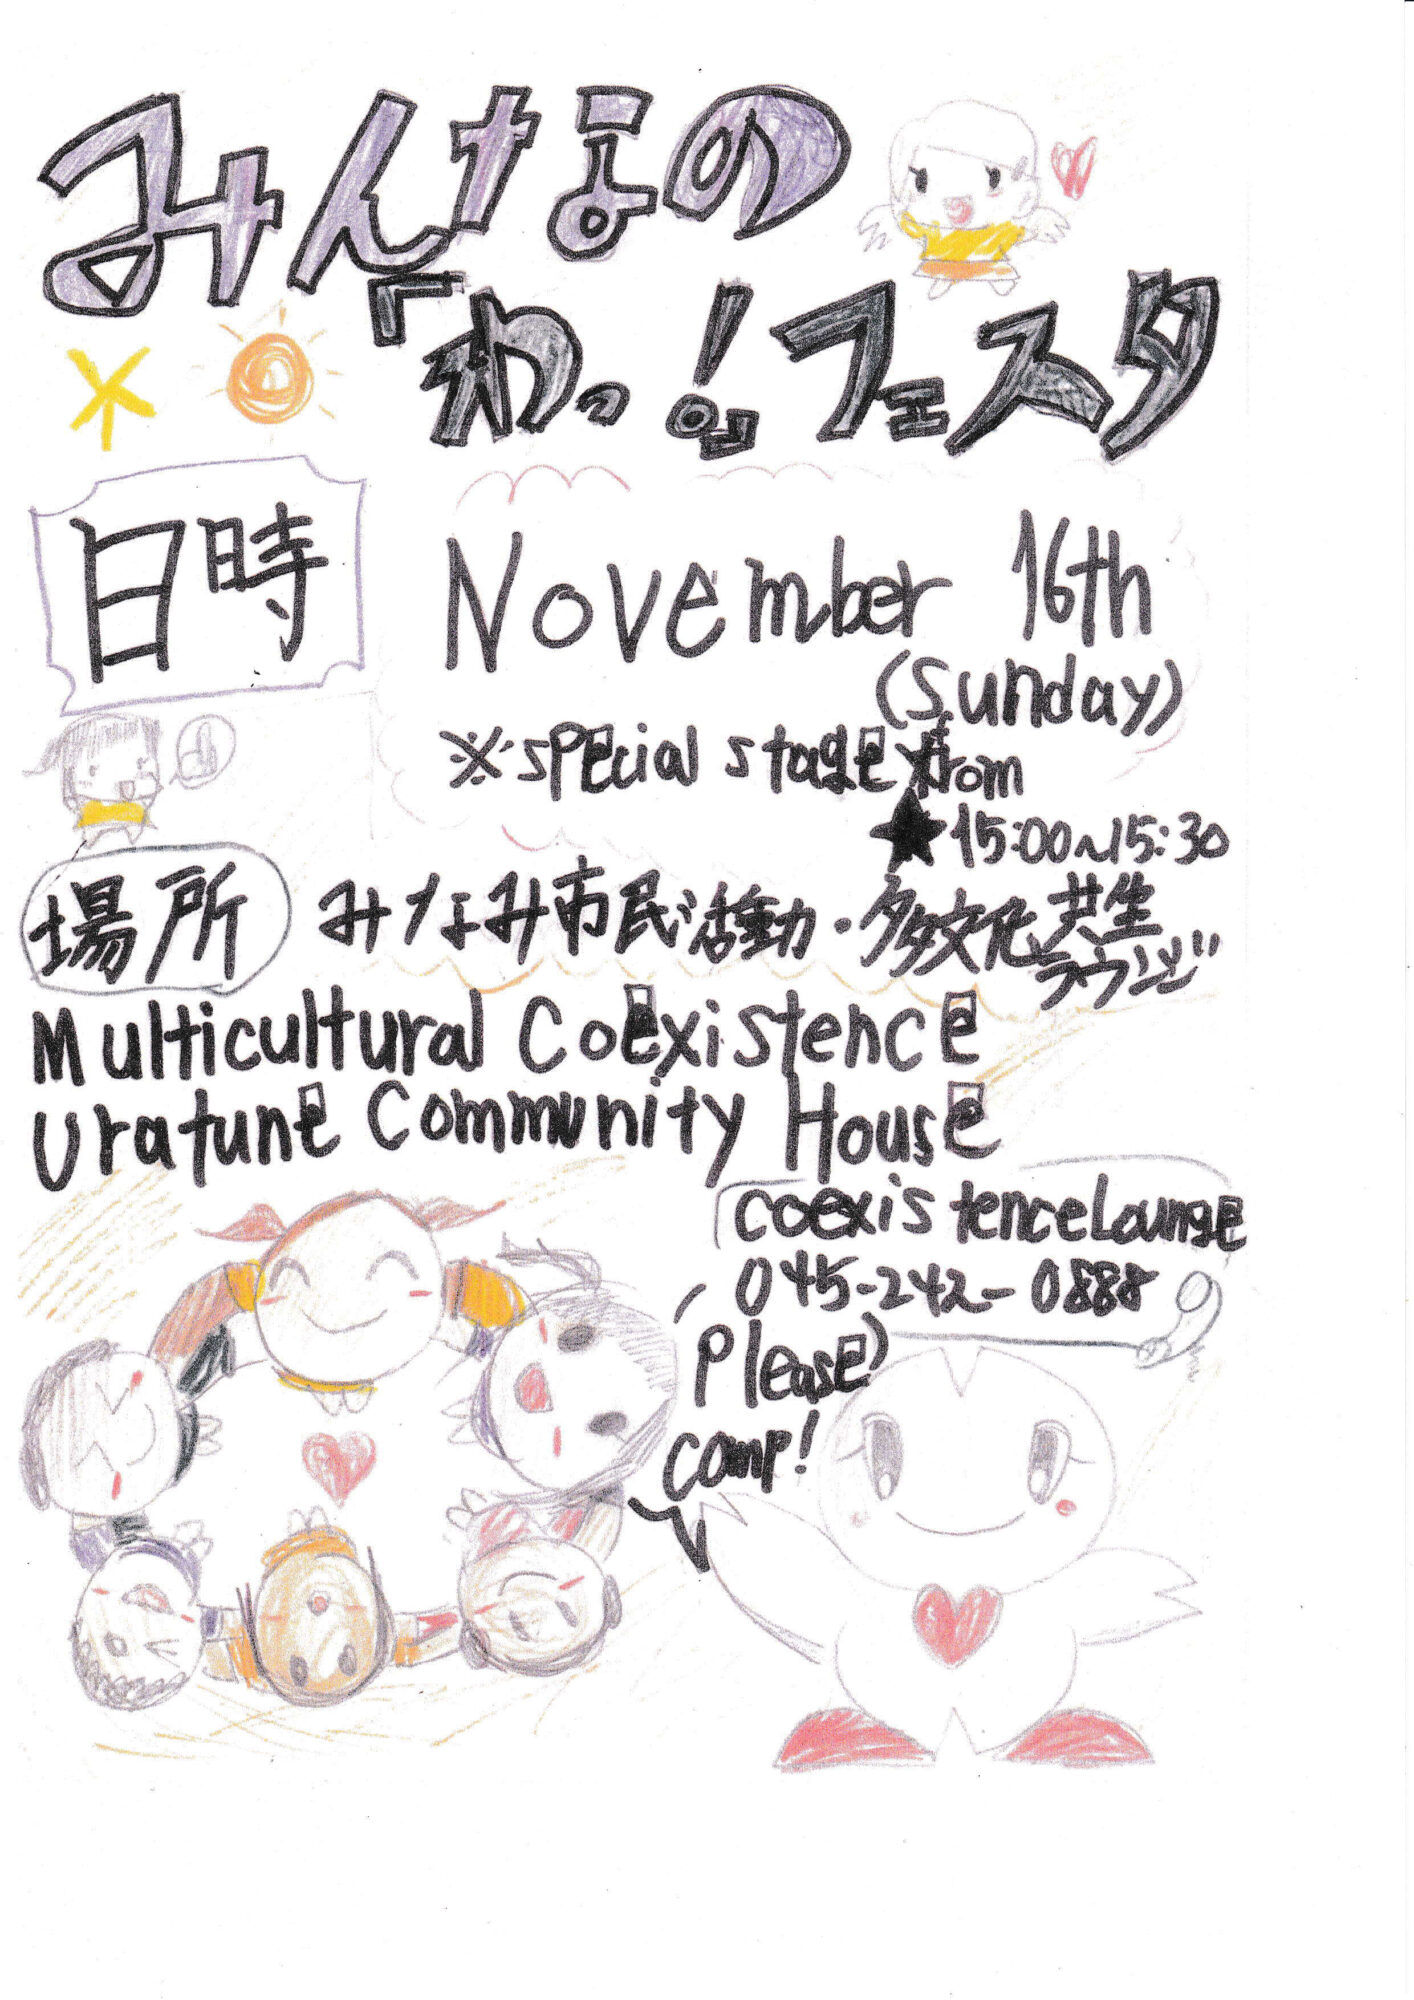 みんなの
「わっ!」フェスタ
日時
November 16th
(Sunday)
※special stage from
★15:00~15:30
場所
みなみ市民活動・多文化共生
ラウンジ
Multicultural Coexistence
Uratune Community House
coexistence Lounge
045-242-0888
Please
come!